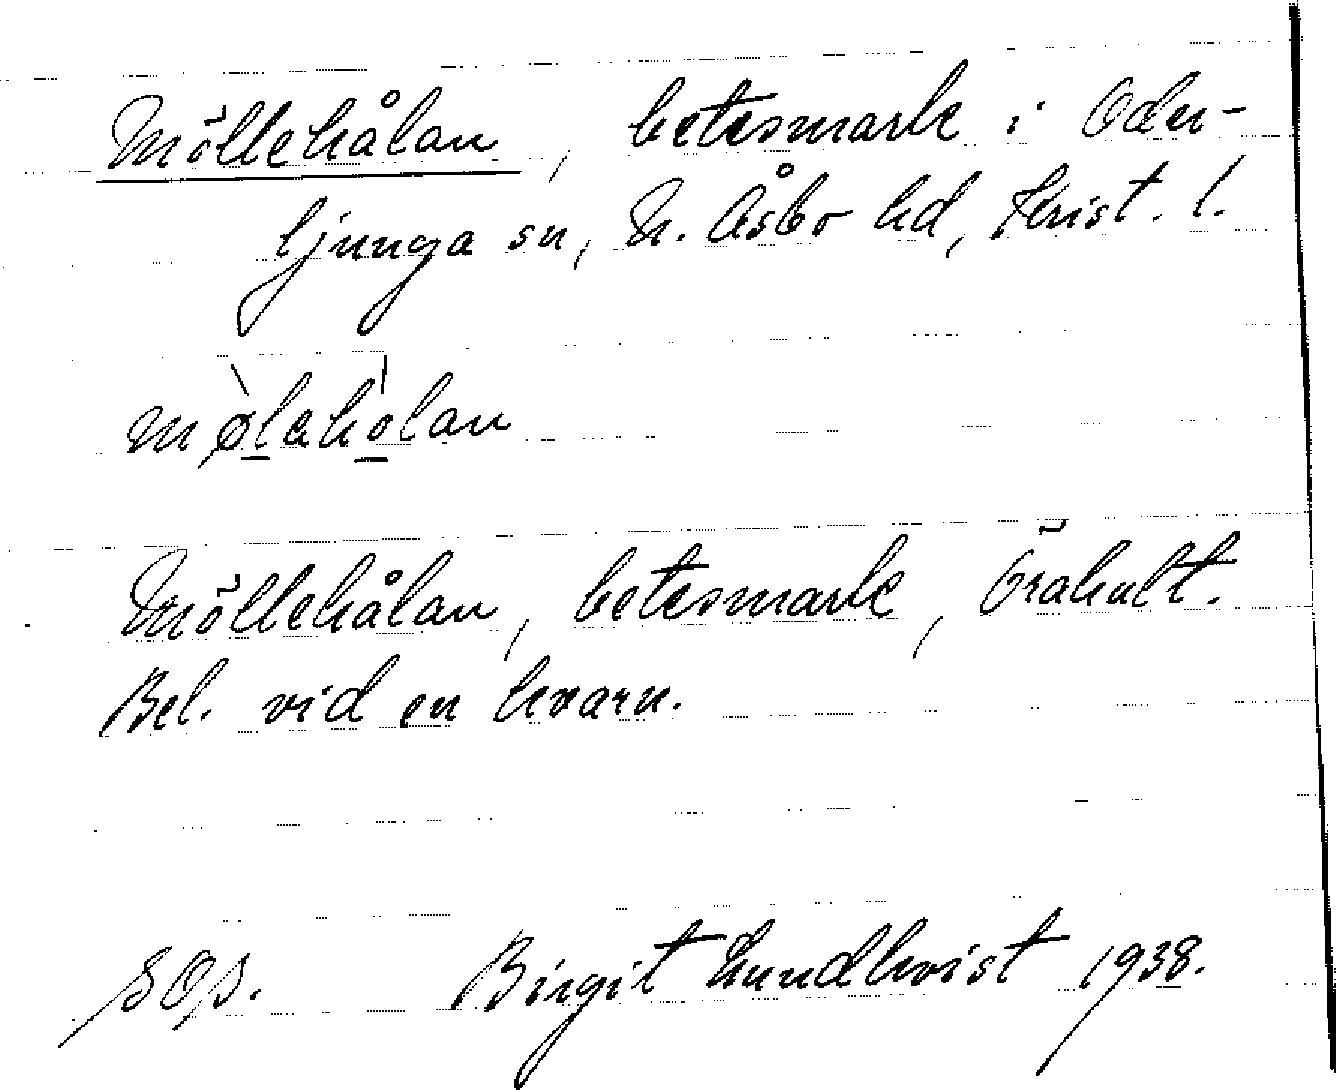 Möllehålan, betesmark i Oder-
ljunga sn, N. Åsbo hd, Krist. l.
mø̀l̲aho̲̍lan
Möllehålan, betesmark, Örahult.
Bel. vid en kvarn.
SOS. Birgit Lundkvist 1938.